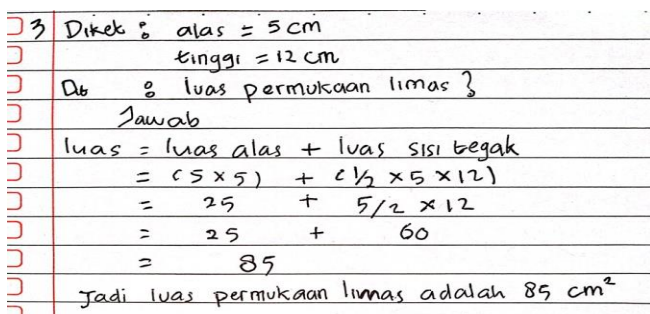 3 Diket : alas = 5 cm
tinggi = 12 cm
Dit : luas permukaan limas ?
Jawab
luas = luas alas + luas sisi tegak
= (5 x 5) + (1/2 x 5 x 12)
= 25 + 5/2 x 12
= 25 + 60
= 85
Jadi luas permukaan limas adalah 85 cm²